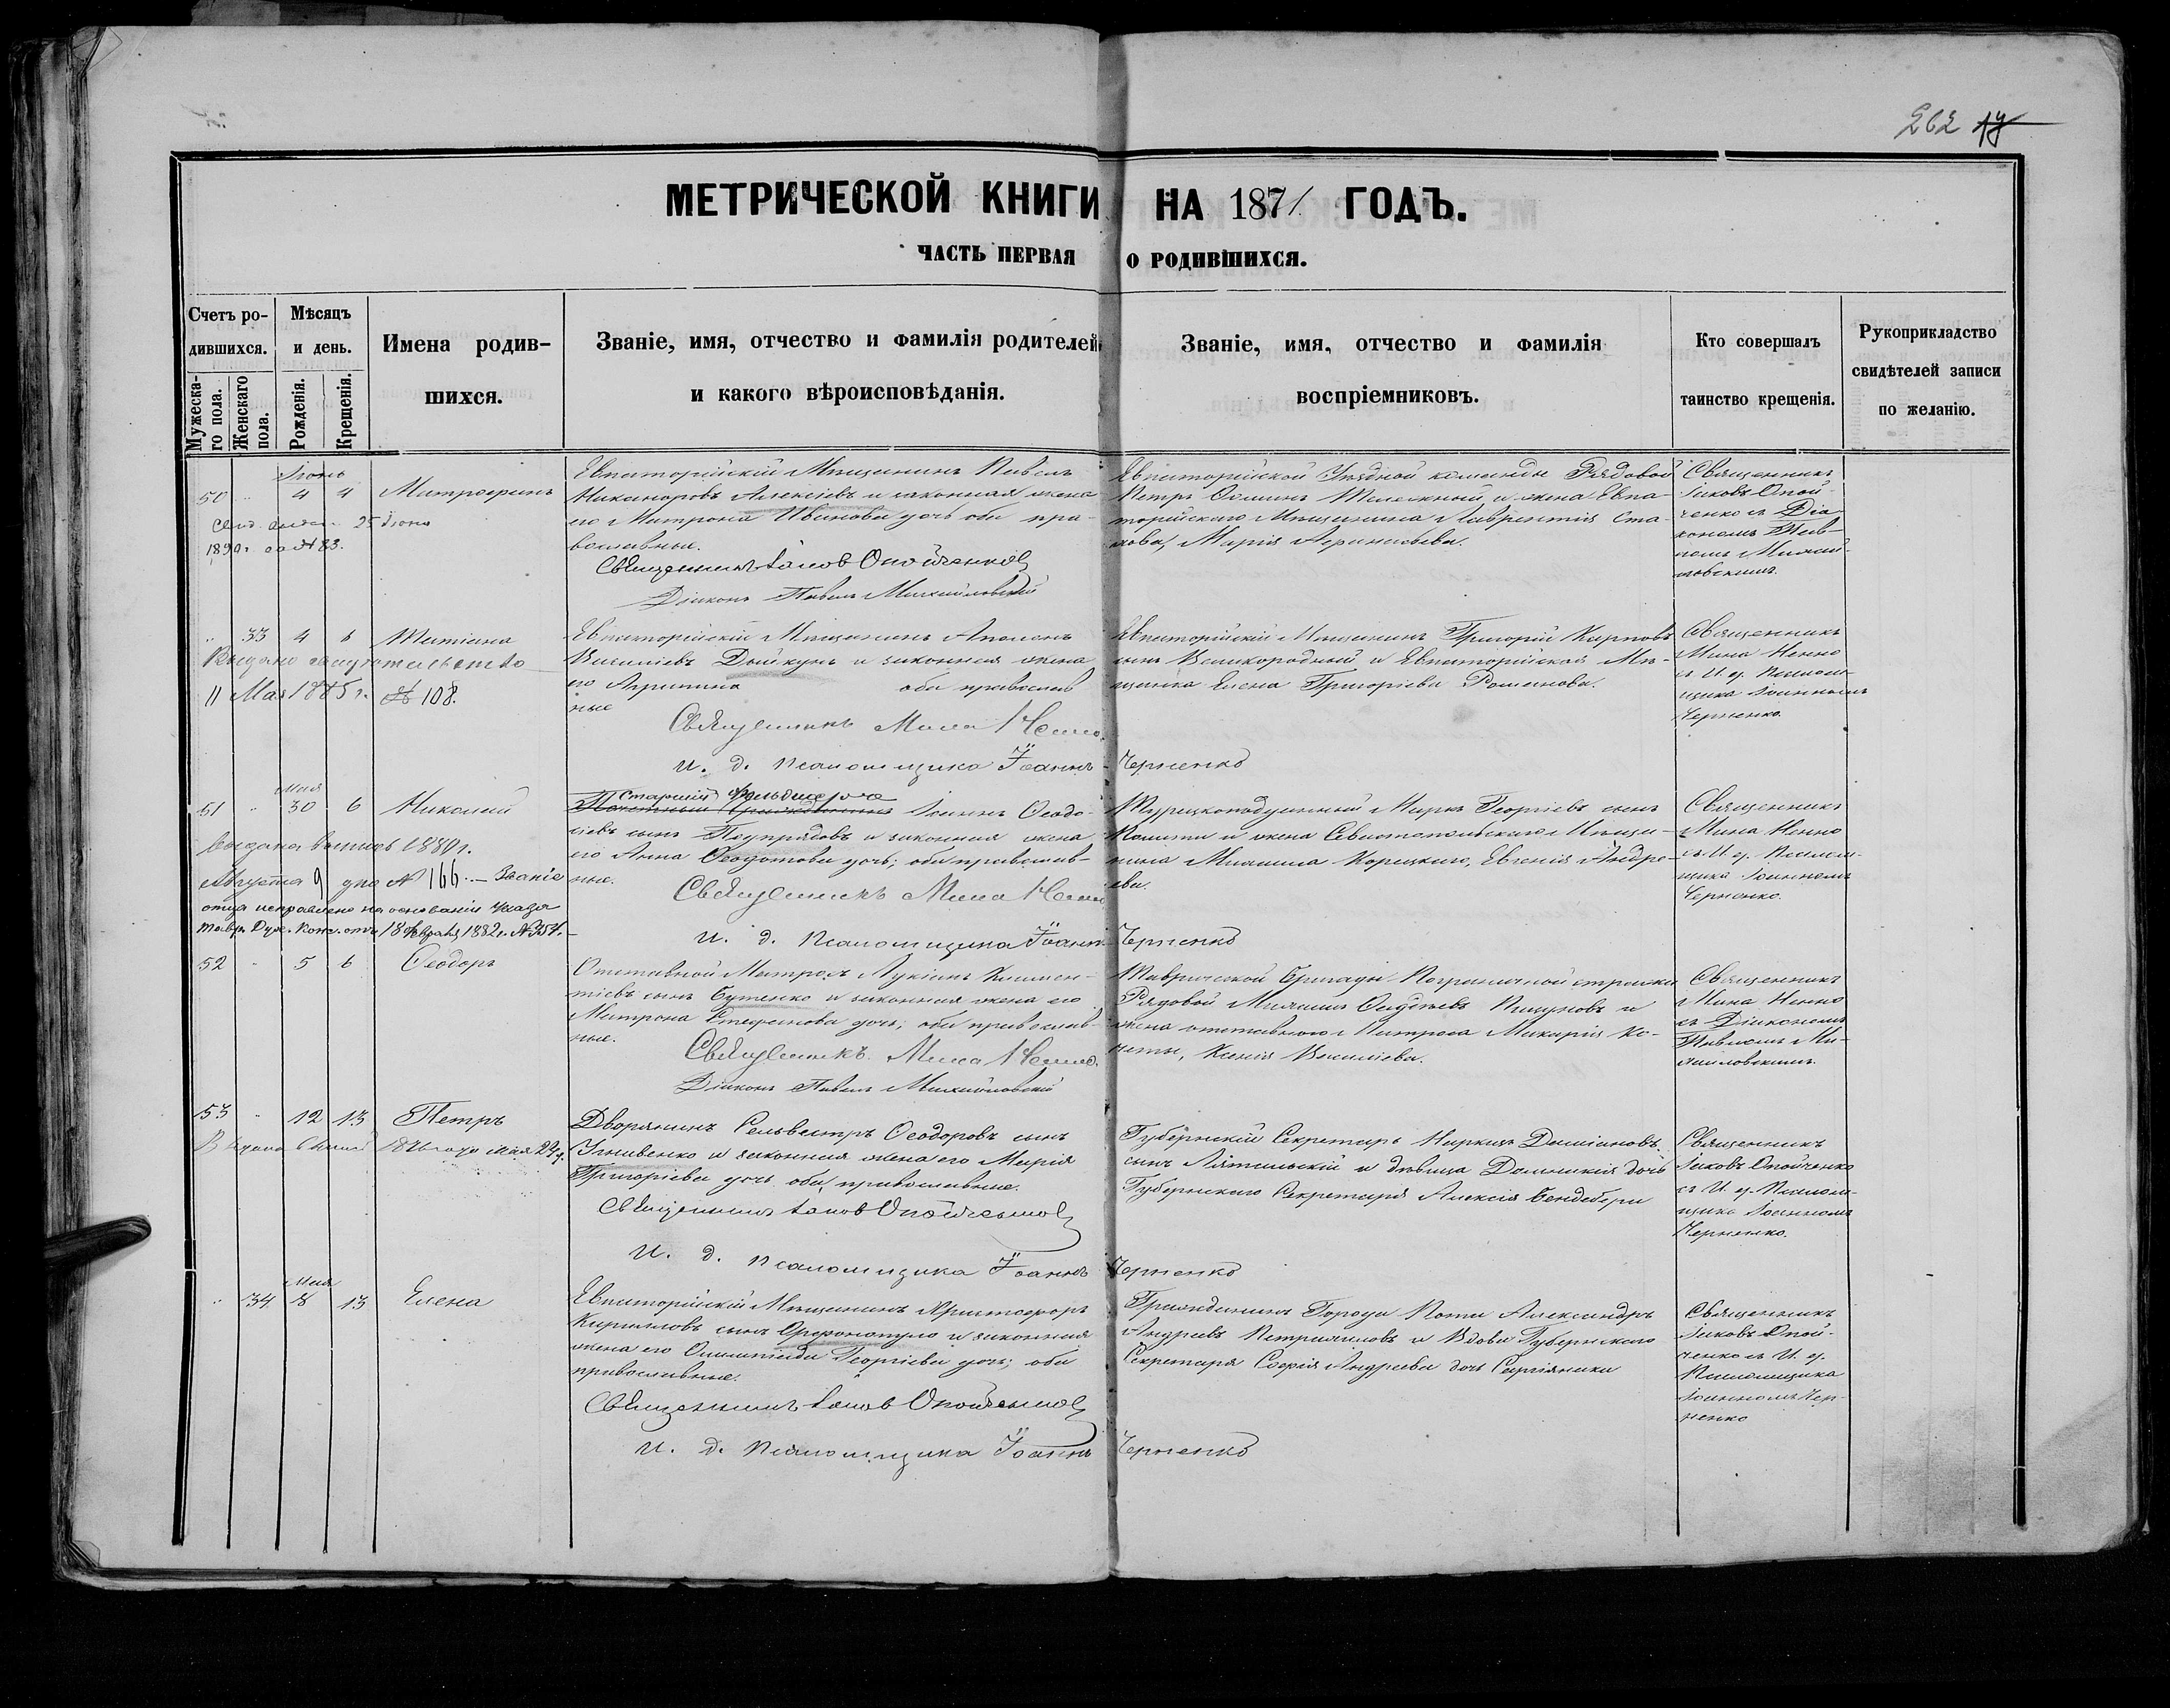 262 17
МЕТРИЧЕСКОЙ КНИГИ НА 1871 ГОДЪ.
ЧАСТЬ ПЕРВАЯ О РОДИВШИХСЯ.
Счетъ ро-
дившихся.
Мужеска-
го пола.
Женскаго
пола.
Мѣсяцъ
и день.
Рожденія.
Крещенія.
Имена родив-
шихся.
Званіе, имя, отчество и фамилія родителей
и какого вѣроисповѣданія.
Званіе, имя, отчество и фамилія
воспріемниковъ.
Кто совершалъ
таинство крещенія.
Рукоприкладство
свидѣтелей записи
по желанію.
Іюнь
50 " 4 4 Митрофанъ
25 Іюня
1890 г. за № 83.
Евпаторійскій Мѣщанинъ Павелъ
Никаноровъ Алексѣевъ и законная жена
его Матрона Иванова дочь оба пра-
вославные.
Священникъ Іаковъ Опойченко
Діаконъ Павелъ Михайловскій
Евпаторійской Уѣздной команды Рядовой
Петръ Ѳоминъ и жена Евпа-
торійскаго Мѣщанина Лаврентія Ста-
хова, Марія Афанасьева.
Священникъ
Іаковъ Опой-
ченко съ Діа-
кономъ Пав-
ломъ Михай-
ловскимъ.
" 33 4 6 Татіана
Выдано свидѣтельство
11 Мая 1885 г. № 108.
Евпаторійскій Мѣщанинъ
Василіевъ Дыйкунъ и законная жена
его Агрипина оба православ
ные
Священникъ Мина Ненно
и. д. псаломщика Іоаннъ Черненко
Евпаторійскій Мѣщанинъ Григорій Карповъ
сынъ Великородный и Евпаторійская Мѣ-
щанка Елена Григоріева Романова.
Священникъ
Мина Ненно
съ И. д. Псалом-
щика Іоанномъ
Черненко.
Мая
51 " 30 6 Николай
Выдана выпись 1880 г.
Августа 9 дня № 166. — Званіе
отца исправлено на основаніи Указа
Тавр. Дух. Конс. отъ 18 Февраля 1882 г. № 354.
Старшій фельдшеръ
Іоаннъ Ѳеодо-
сіевъ сынъ Подпрядовъ и законная жена
его Анна Ѳеодотова дочь; оба православ-
ные.
Священникъ Мина Ненно
и. д. псаломщика Іоаннъ Черненко
Турецкоподданный Маркъ Георгіевъ сынъ
и жена Севастопольскаго Мѣща-
нина Михаила Корецкаго, Евгенія Андре-
ева.
Священникъ
Мина Ненно
съ И. д. Псалом-
щика Іоанномъ
Черненко.
52 " 5 6 Ѳеодоръ
Отставной Матросъ Лукіанъ Климен-
тіевъ сынъ Бутенко и законная жена его
Матрона Стефанова дочь; оба православ-
ные.
Священникъ Мина Ненно.
Діаконъ Павелъ Михайловскій
Таврической Бригады Пограничной стражи
Рядовой Михаилъ Пикуновъ и
жена отставного Матроса Макарія Ко-
четы, Ксенія Василіева.
Священникъ
Мина Ненно
съ Діакономъ
Павломъ Ми-
хайловскимъ.
53 " 12 13 Петръ
Дворянинъ Сельвестръ Ѳеодоровъ сынъ
Гнивенко и законная жена его Марія
Григоріева дочь оба православные.
Священникъ Іаковъ Опойченко
И. д. псаломщика Іоаннъ Черненко
Губернскій Секретарь Наркизъ Даміановъ
сынъ и дѣвица Домникія дочь
Губернскаго Секретаря Алексія Бендебери
Священникъ
Іаковъ Опойченко
съ И. д. Псалом-
щика Іоанномъ
Черненко.
Мая
" 34 8 13 Елена
Евпаторійскій Мѣщанинъ Христофоръ
Кирилловъ сынъ и законная
жена его Олимпіада Георгіева дочь; оба
православные.
Священникъ Іаковъ Опойченко
и. д. псаломщика Іоаннъ Черненко
Гражданинъ Города Поти Александръ
Андреевъ и Вдова Губернскаго
Секретаря Софія Андреева дочь
Священникъ
Іаковъ Опой-
ченко съ И. д.
Псаломщика
Іоанномъ Чер-
ненко